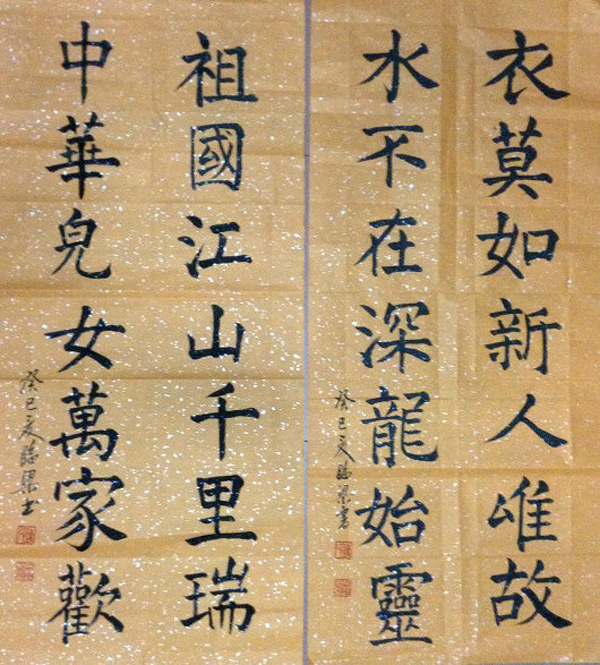 衣莫如新人唯故
水不在深龍始靈
癸巳夏臨梁書
祖國江山千里瑞
中華兒女萬家歡
癸巳夏臨梁